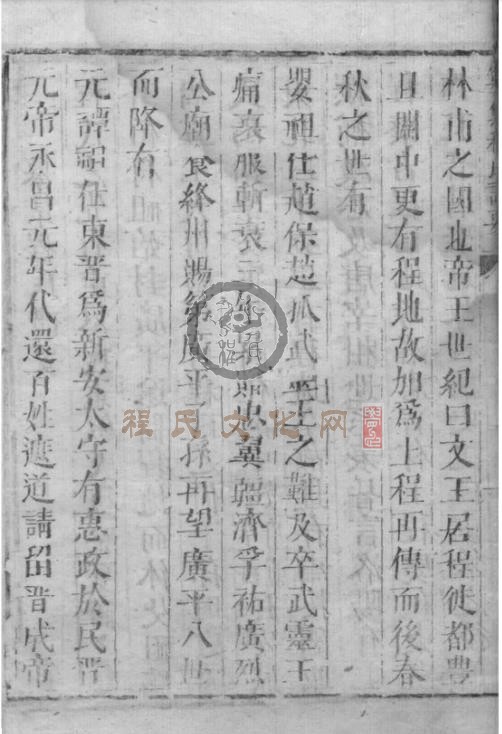 林甫之國也帝王世紀曰文王居程徙都豊
且關中更有程地故加為上程再傳而後春
秋之世有
嬰祖仕趙保趙孤武 王之難及卒武靈王
痛哀服斬衰三年 忠翼疆濟孚祐廣烈
公廟食絳州賜第廣平子孫再望廣平八世
而降有
元譚詔仕東晉爲新安太守有惠政於民晋
元帝永昌元年代還百姓遮道請留晋成帝
程氏文化网